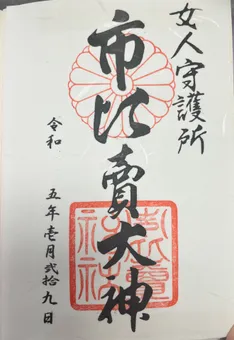 女人守護所
市比賣大神
令和五年壱月弐拾九日
市比賣神社